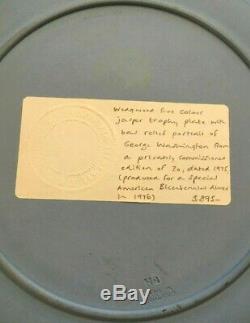 Wedgwood five colour
jasper trophy plate with
bas relief portrait of
George Washington from
a privately commissioned
edition of 20, dated 1975
(produced for a special
American Bicentennial dinner
in 1976)
$895-